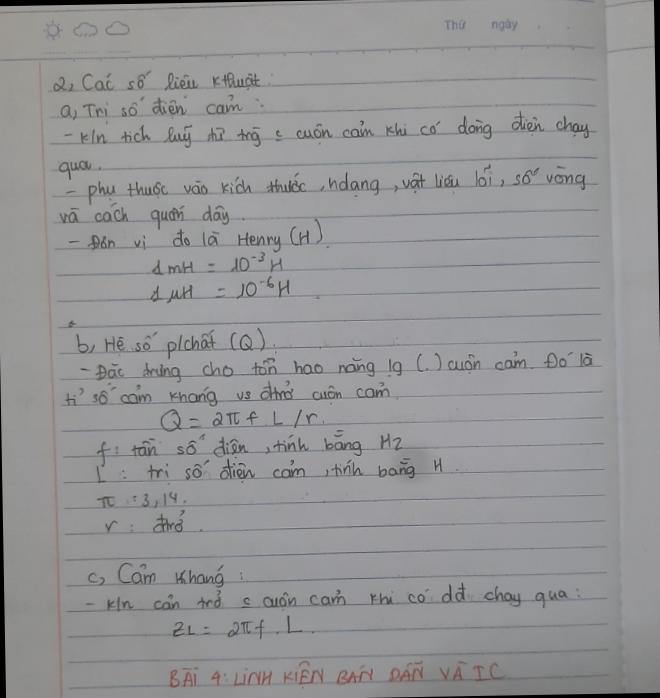 Thứ ngày . .
2, Các số liệu kthuật:
a, Trị số điện cảm :
- k/n tích luỹ từ trg c cuộn cảm khi có dòng điện chạy
qua.
- phụ thuộc vào kích thước, hdạng, vật liệu lõi, số vòng
và cách quấn dây.
- Đơn vị đo là Henry (H)
1 mH = 10⁻³ H
1 μH = 10⁻⁶ H
b, Hệ số p/chất (Q).
- Đặc trưng cho tổn hao năng lg (.) cuộn cảm. Đó là
tỉ số cảm kháng vs đtrở cuộn cảm
Q = 2πf.L/r.
f: tần số điện, tính bằng Hz
L : trị số điện cảm, tính bằng H.
π : 3,14.
r : đtrở.
c, Cảm kháng :
- k/n cản trở c cuộn cảm khi có dđ chạy qua:
ZL = 2πf.L.
BÀI 4: LINH KIỆN BÁN DẪN VÀ IC